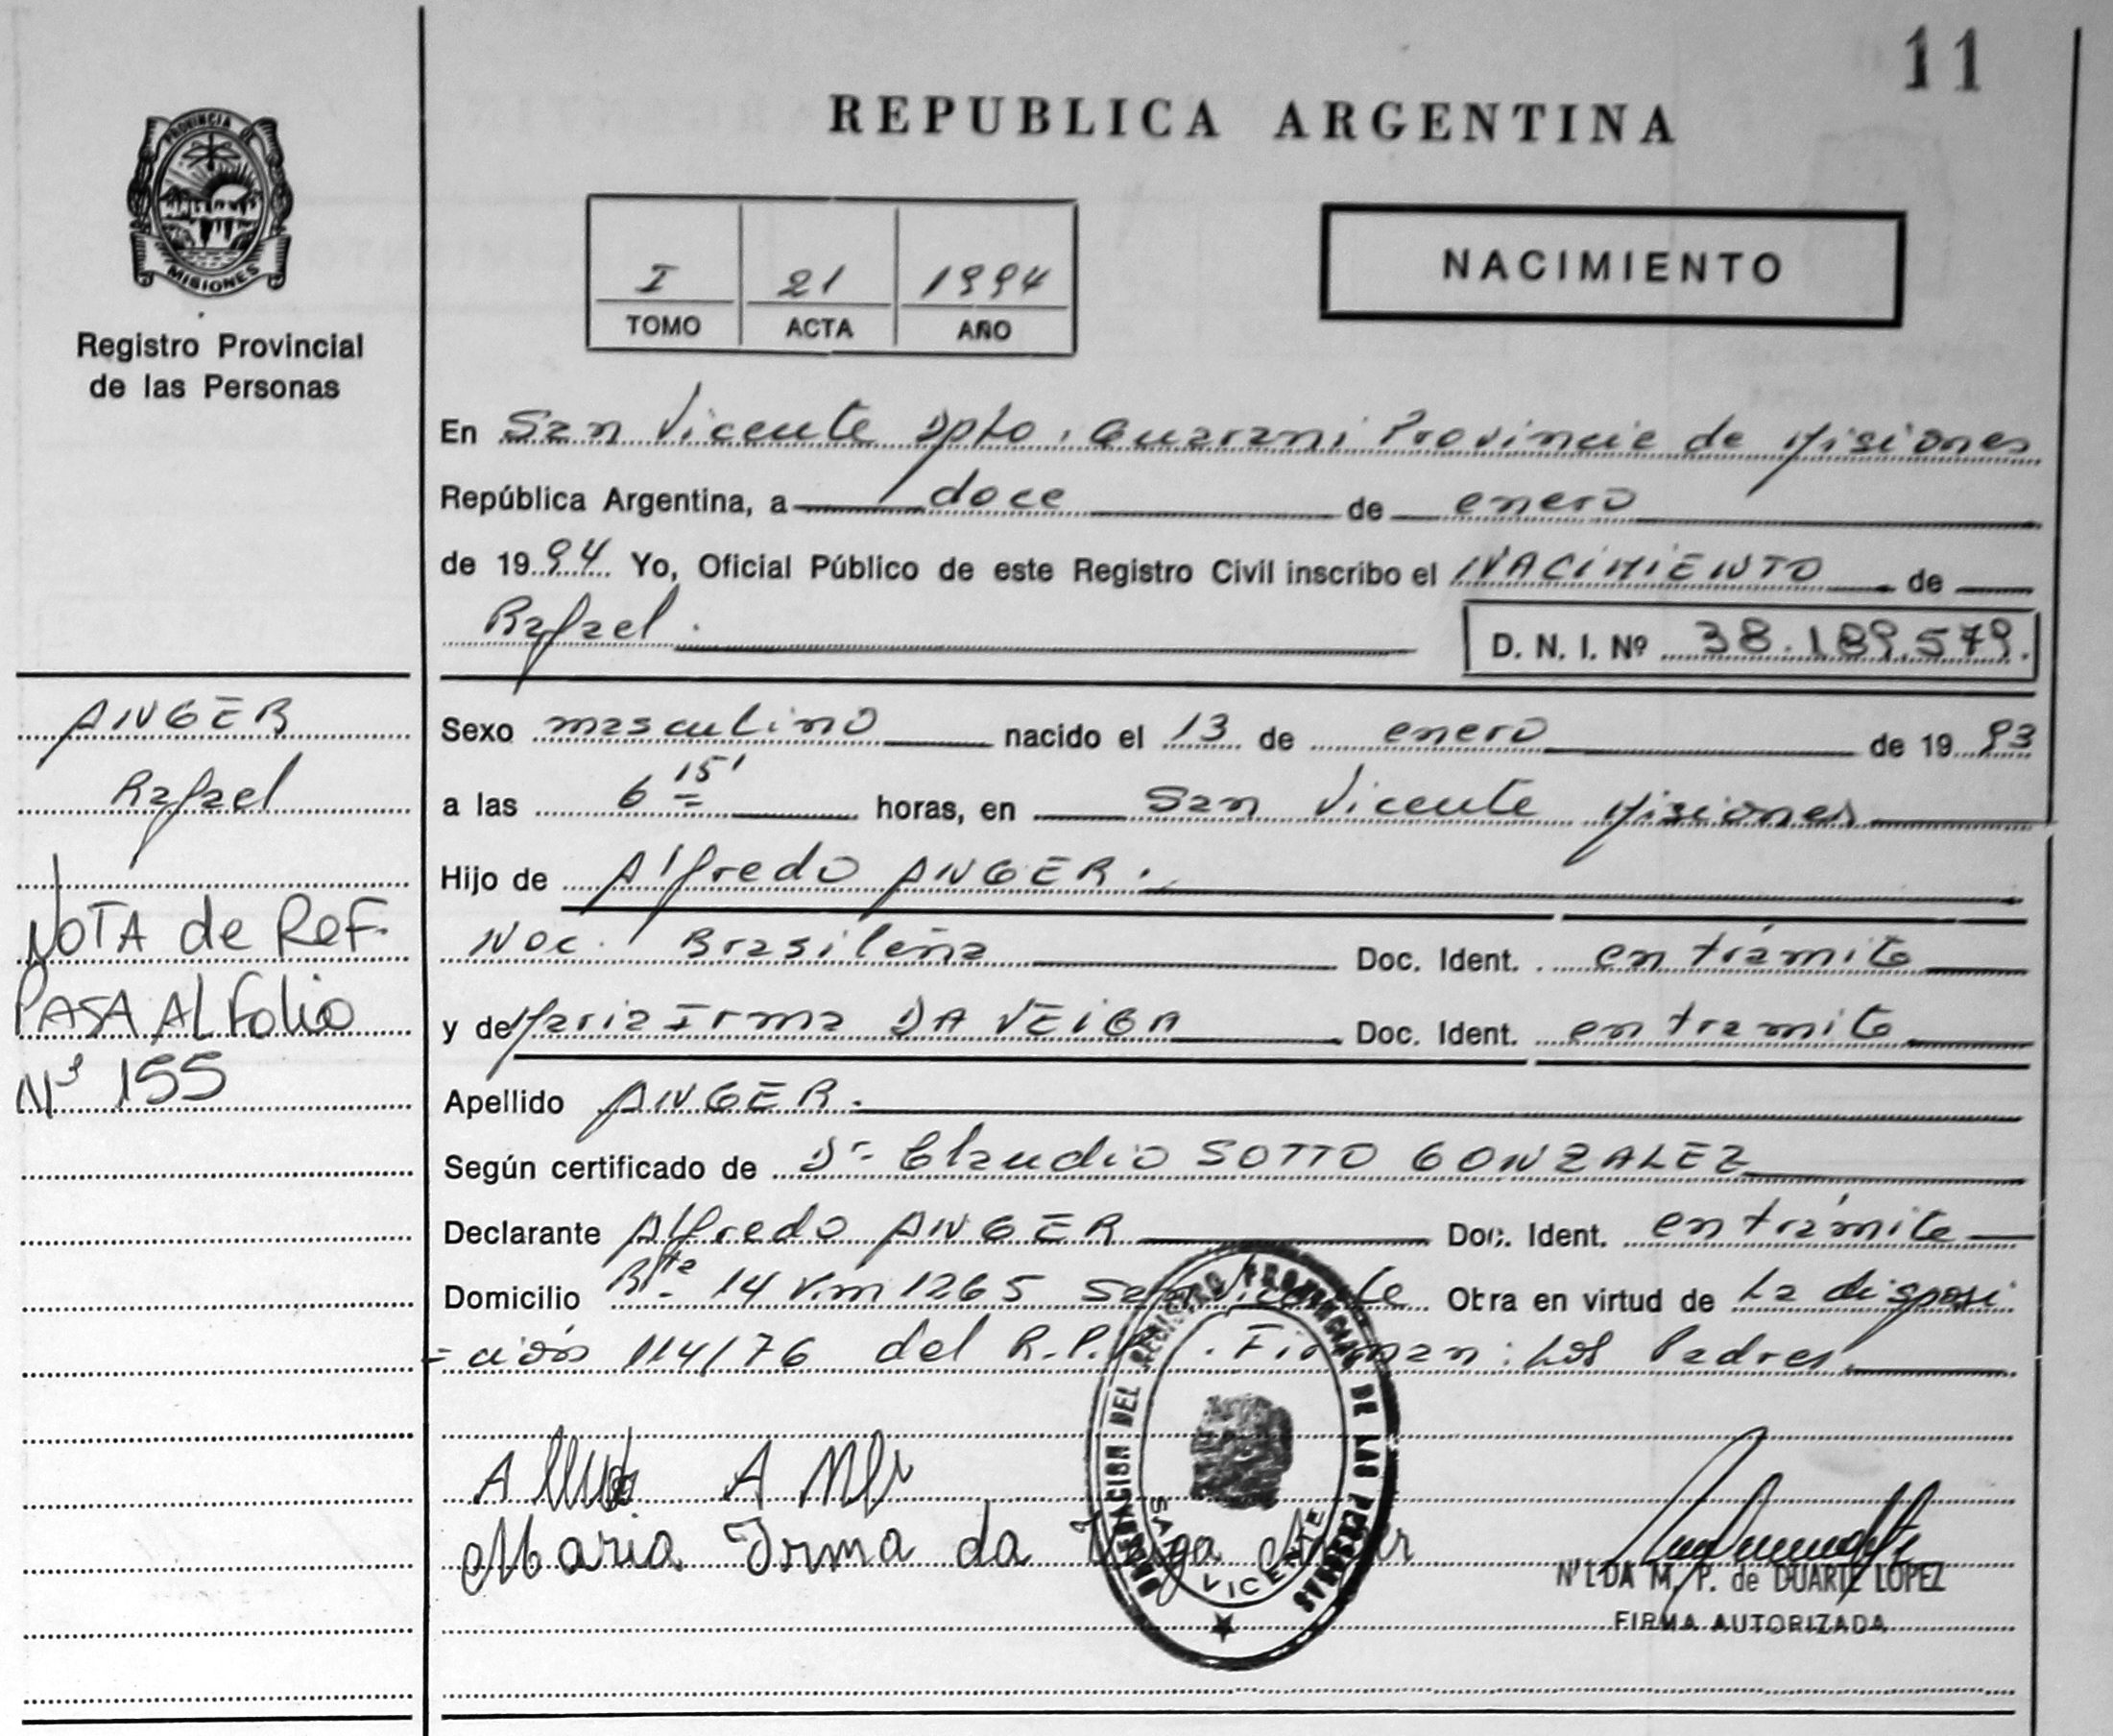 11
REPUBLICA ARGENTINA
PROVINCIA DE
MISIONES
Registro Provincial
de las Personas
I 21 1994
TOMO ACTA AÑO
NACIMIENTO
En San Vicente Dpto. Guarani Provincia de Misiones
República Argentina, a doce de enero
de 1994 Yo, Oficial Público de este Registro Civil inscribo el NACIMIENTO de
Rafael.
D. N. I. Nº 38.189.579.
ANGER
Rafael
NOTA de REF.
PASA AL Folio
Nº 155
Sexo masculino nacido el 13 de enero de 1993
a las 6 15' horas, en San Vicente Misiones
Hijo de Alfredo ANGER.
Nac. Brasileña Doc. Ident. en trámite
y de Maria Irma DA VEIGA Doc. Ident. en tramite
Apellido ANGER.
Según certificado de Dr Claudio SOTTO GONZALEZ
Declarante Alfredo ANGER Doc. Ident. en trámite
Domicilio Rta 14 Km 1265 San Vicente Otra en virtud de La disposi
=ción 114/76 del R.P.P. Firman: Los Padres.
Maria Irma da Veiga Anger
DELEGACION DEL REGISTRO PROVINCIAL DE LAS PERSONAS
SAN VICENTE
NILDA M. P. de DUARTE LOPEZ
FIRMA AUTORIZADA